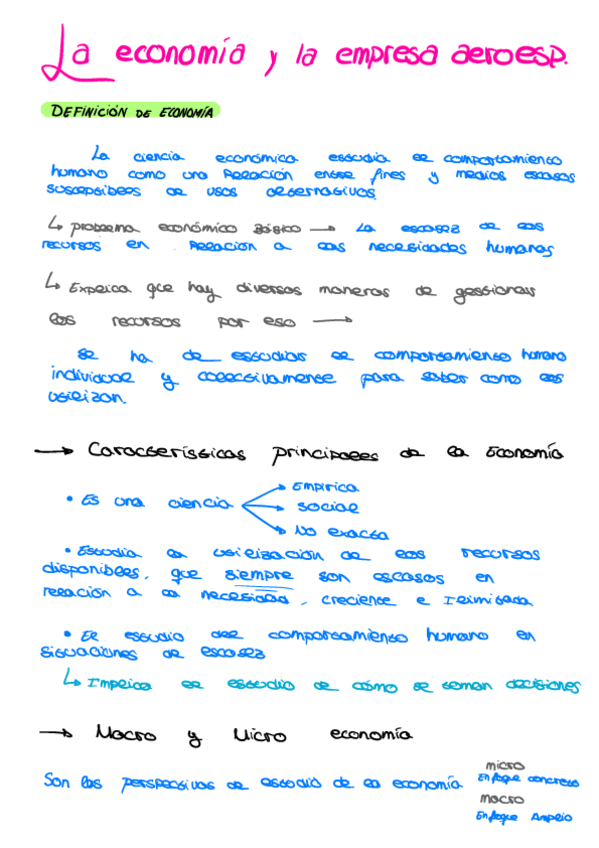 La economía y la empresa aeroesp.
DEFINICIÓN DE ECONOMÍA
La ciencia económica estudia el comportamiento
humano como una relación entre fines y medios escasos
susceptibles de usos alternativos.
↳ problema económico básico → La escasez de los
recursos en relación a las necesidades humanas
↳ Explica que hay diversas maneras de gestionar
los recursos por eso →
Se ha de estudiar el comportamiento humano
individual y colectivamente para saber como los
utilizan.
→ Características principales de la Economía
• Es una ciencia
Empírica
social
No exacta
• Estudia la utilización de los recursos
disponibles, que siempre son escasos en
relación a la necesidad, creciente e ilimitada
• El estudio del comportamiento humano en
situaciones de escasez
↳ Implica el estudio de cómo se toman decisiones
→ Macro y Micro economía
Son las perspectivas de estudio de la economía
micro
Enfoque concreto
macro
Enfoque Amplio